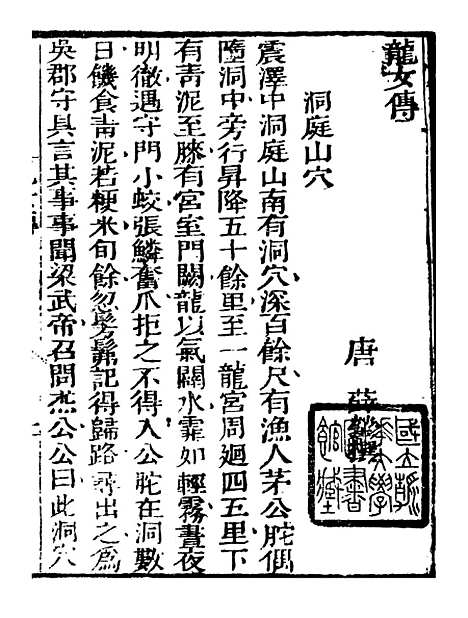 龍女傳
唐 薛
洞庭山穴
震澤中洞庭山南有洞穴深百餘尺有漁人茅公䏲偶
墮洞中旁行昇降五十餘里至一龍宮周迴四五里下
有青泥至膝有宮室門闕龍以氣闢水霏如輕霧晝夜
明徹遇守門小蛟張鱗奮爪拒之不得入公䏲在洞數
日饑食青泥若粳米旬餘忽髣髴記得歸路尋出之爲
吳郡守具言其事事聞梁武帝召問杰公公曰此洞穴